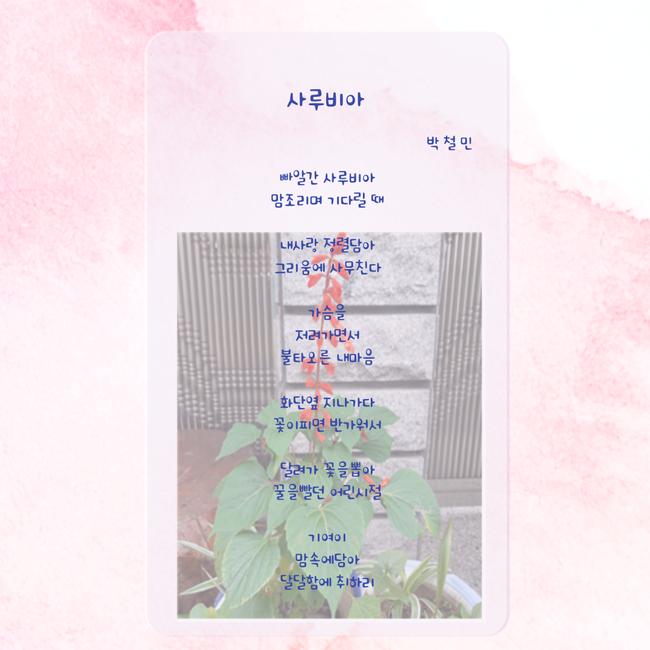 사루비아
박철민
빠알간 사루비아
맘조리며 기다릴 때
내사랑 정렬담아
그리움에 사무친다
가슴을
저려가면서
불타오른 내마음
화단옆 지나가다
꽃이피면 반가워서
달려가 꽃을뽑아
꿀을빨던 어린시절
기여이
맘속에담아
달달함에 취하리